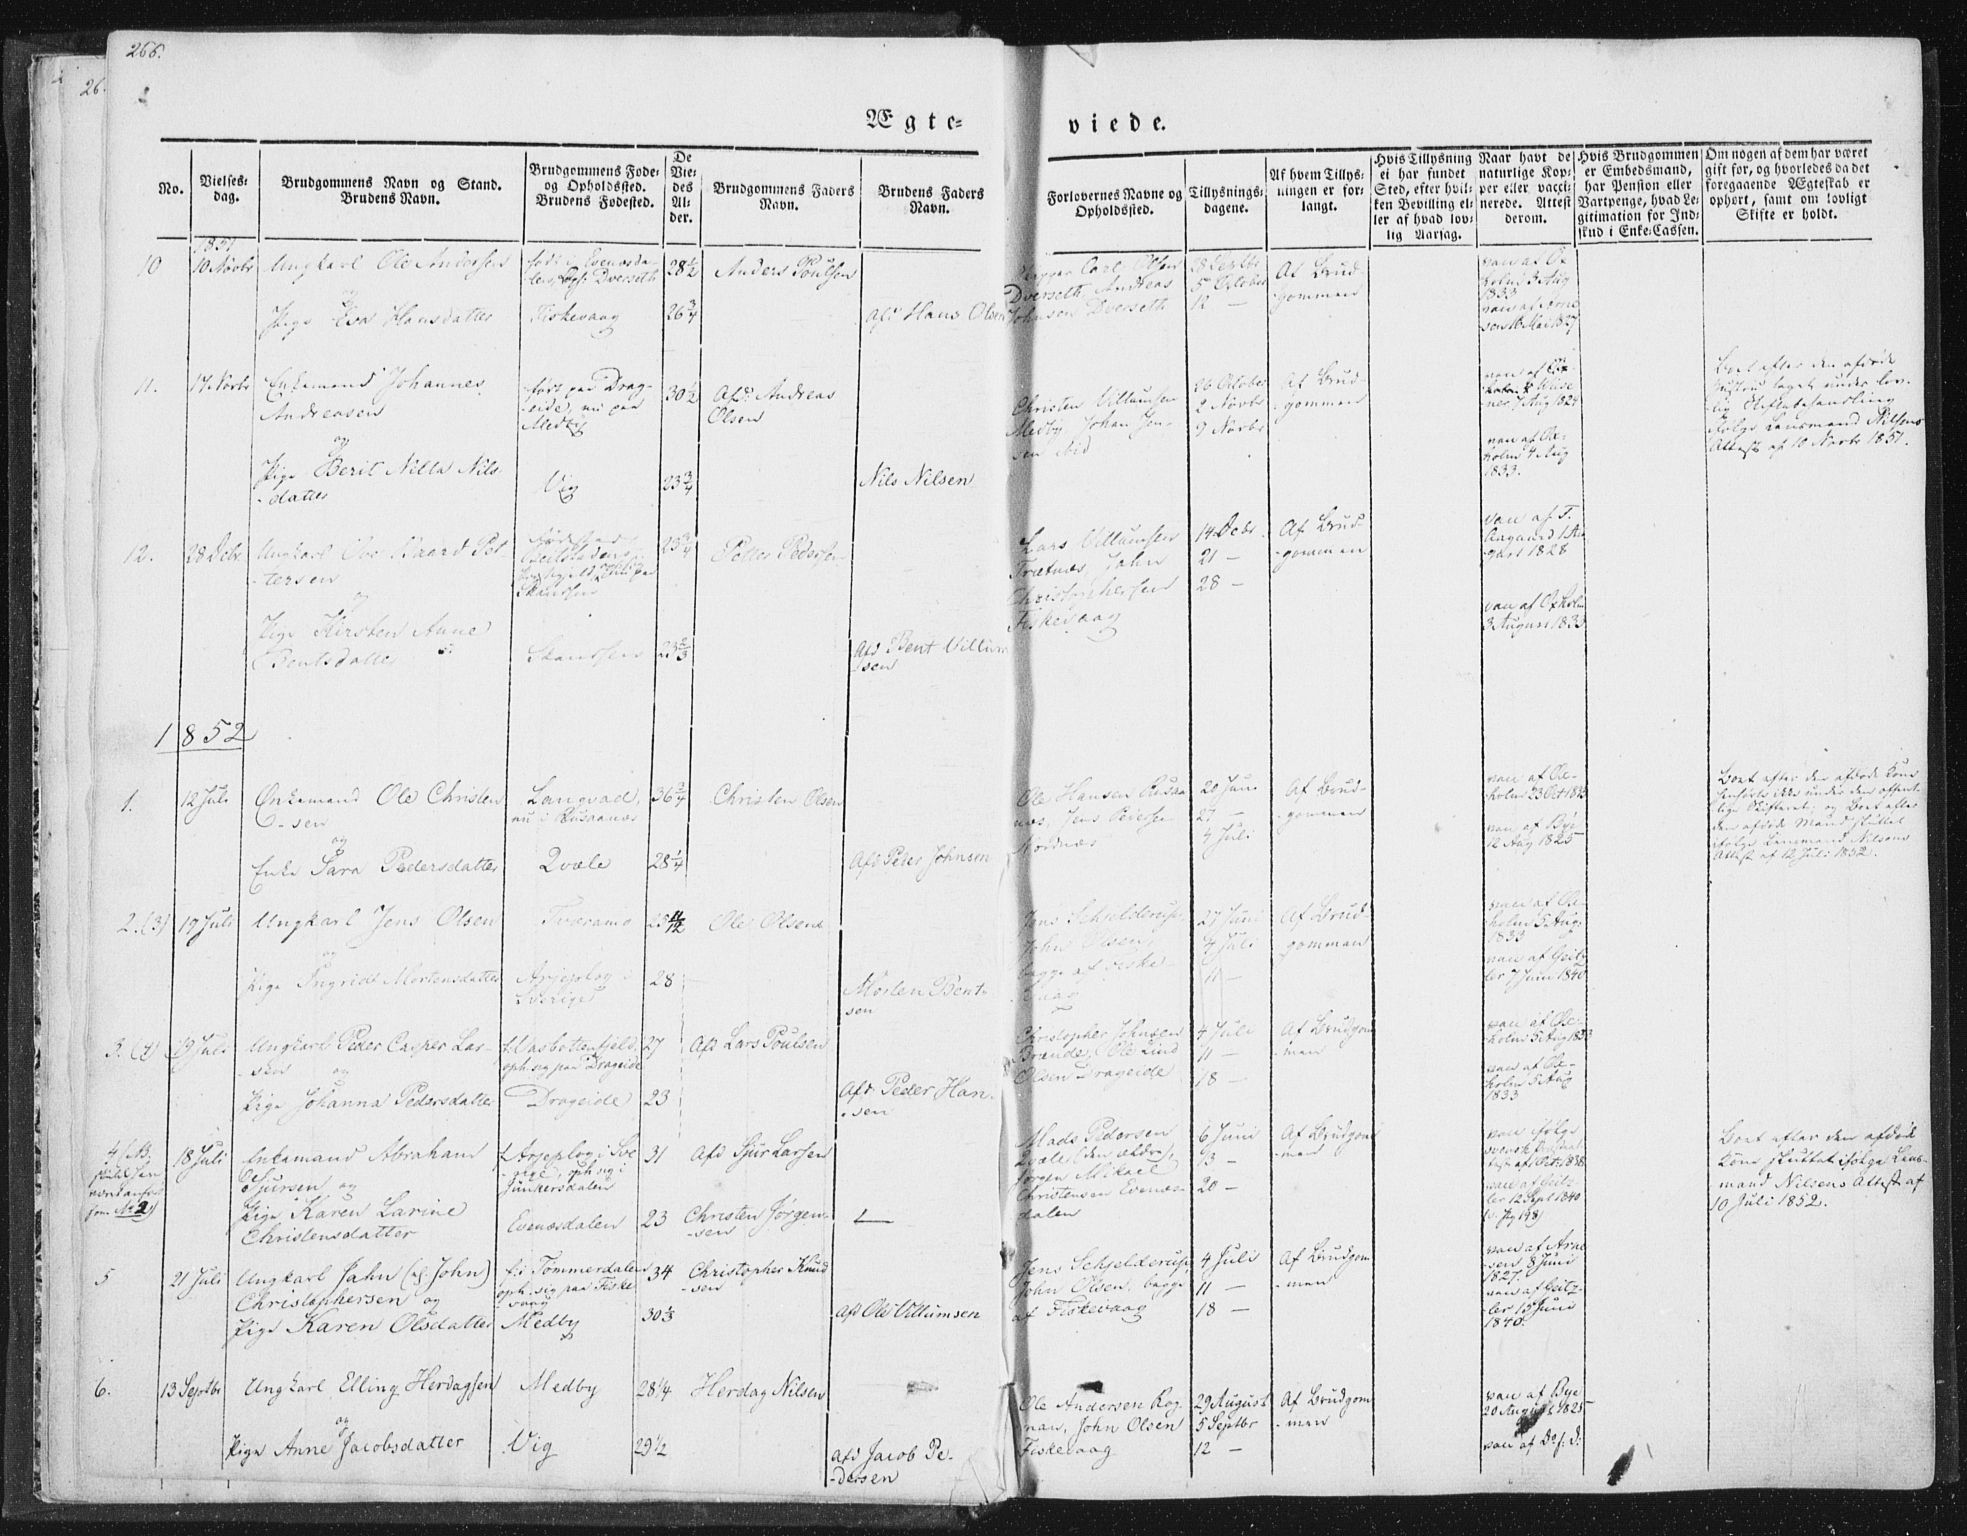 266.
26.
Ægte-
viede.
No.
Vielses-
dag.
Brudgommens Navn og Stand.
Brudens Navn.
Brudgommens Føde-
og Opholdssted.
Brudens Fødested.
De
Vie-
des
Al-
der.
Brudgommens Faders
Navn.
Brudens Faders
Navn.
Forlovernes Navne og
Opholdssted.
Tillysnings-
dagene.
Af hvem Tillys-
ningen er for-
langt.
Hvis Tillysning
ei har fundet
Sted, efter hvil-
ken Bevilling el-
ler af hvad lov-
lig Aarsag.
Naar havt de
naturlige Kop-
per eller vacci-
nerede. Attest
derom.
Hvis Brudgommen
er Embedsmand,
har Pension eller
Vartpenge, hvad Le-
gitimation for Ind-
skud i Enke-Cassen.
Om nogen af dem har været
gift før, og hvorledes da det
foregaaende Ægteskab er
ophørt, samt om lovligt
Skifte er holdt.
1851
10
10 Novbr
Ungkarl Ole Andersen
og
Pige Eva Hansdatter
Fiskevaag
28 1/2
26 3/4
Anders Poulsen
Afd Hans Olsen
Carl Olsen
Dverseth, Andreas
Johnsen Dverseth
28 Septbr
5 October
12 —
Af Brud-
gommen
vac af Ox-
holm 3 Aug
1833
vac af Arne
sen 16 Mai 1827
11.
17 Novbr
Enkemand Johannes
Andreasen
og
Pige Berit Nilla Nils
-datter
født paa Drag-
-eide, nu paa
Medby
Vig
30 1/2
23 3/4
Afd. Andreas
Olsen
Nils Nilsen
Christen Villumsen
Medby, Johan Jen-
sen ibid
26 October
2 Novbr
9 Novbr
Af Brud-
gommen
7 Aug 1824
vac af Ox-
holm 4 Aug
1833.
Boet efter den afdøde
Hustru taget under lov-
lig Skiftebehandling
ifølge Lensmand Nilsens
Attest af 10 Novbr 1851.
12.
28 Decbr
Ungkarl Ove Baard Pet
-tersen
og
Pige Kirsten Anne
Bentsdatter
Skansen
23 3/4
23 2/3
Petter Pedersen
Afd Bent Villum
-sen
Lars Villumsen
Trætnes, John
Christophersen
Fiskevaag
14 Decbr.
21 —
28 —
Af Brud-
gommen
vac af T.
Aagaard 1 Au
-gust 1828
vac af Oxholm
3 August 1833
1852
1.
12 Juli
Enkemand Ole Christen
-sen
og
Enke Sara Pedersdatter
Langvad,
nu i Rusaanæs
Qvæle
36 3/4
28 1/4
Christen Olsen
Afd Peter Johnsen
Ole Hansen Rusaa
næs, Jens Pedersen
Nordnæs
20 Juni
27 —
4 Juli
Af Brud-
gommen
vac af Ox-
holm 23 Oct 1815
vac af Bye
12 Aug 1825
Boet efter den afdøde Kone
den afdøde Mand skiftet
ifølge Lensmand Nilsens
Attest af 12 Juli 1852.
2. (3)
19 Juli
Ungkarl Jens Olsen
og
Pige Ingrid Mortensdatter
Tværamo
Arjeplog i
Sverige
25 11/12
28
Ole Olsen
Morten Bent-
sen
Jens Schjelderup,
John Olsen,
begge af Fiske
vaag
27 Juni
4 Juli
11 —
Af Brud-
gommen
vac af Ox-
holm 5 Aug.
1833
vac af Geitz-
ler 7 Juni 1840
3. (4)
19 Juli
Ungkarl Peder Casper Lar-
-sen og
Pige Johanna Pedersdatter
f. Vasbottenfjeld,
oph. sig paa Drageide
Drageide
27
23
Afd Lars Poulsen
Afd Peder Han-
-sen
Christopher Johnsen
Brænde, Ole Lind
Olsen Drageide
4 Juli
11 —
18 —
Af Brudgom
-men
vac af Ox-
holm 5 Aug 1833
vac af Ox-
holm 5 Aug
1833
4 (NB.
som No 2)
18 Juli
Enkemand Abraham
Sjursen og
Pige Karen Larine
Christensdatter
f. Arjeplog i Sve
-rige, oph. sig i
Junkersdalen
Evenæsdalen
31
23
Afd Sjur Larsen
Christen Jørgen-
-sen
Mads Pedersen
Qvæle (den ældre),
Jørgen Mikael
Christensen Evenæs-
dalen
6 Juni
13 —
20 —
Af Brudgom
-men
vac ifølge
vac af Geitz-
ler 12 Sept 1840
Boet efter den afdøde
Kone skiftet ifølge Lens-
mand Nilsens Attest af
10 Juli 1852.
5
21 Juli
Ungkarl Jahn (ɔ: John)
Christophersen og
Pige Karen Olsdatter
f. i Tommerdalen
oph. sig paa Fiske
-vaag
Medby
34
30 1/3
Christopher Knud
-sen
Afd Ole Villumsen
Jens Schjelderup,
John Olsen, begge
af Fiskevaag
4 Juli
11 —
18 —
Af Brudgom
-men
vac af Arne
-sen 8 Juni
1827.
vac af Geitz-
-ler 15 Juni
1840.
6.
13 Septbr
Ungkarl Elling Herdagsen
og
Pige Anne Jacobsdatter
Medby
Vig
28 1/4
29 1/2
Herdag Nilsen
Afd Jacob Pe-
-dersen
Ole Andersen Rog
nan, John Olsen
Fiskevaag
29 August
5 Septbr
12 —
Af Brudgom
-men
vac af Bye
20 August 1825
vac af Do s. D.